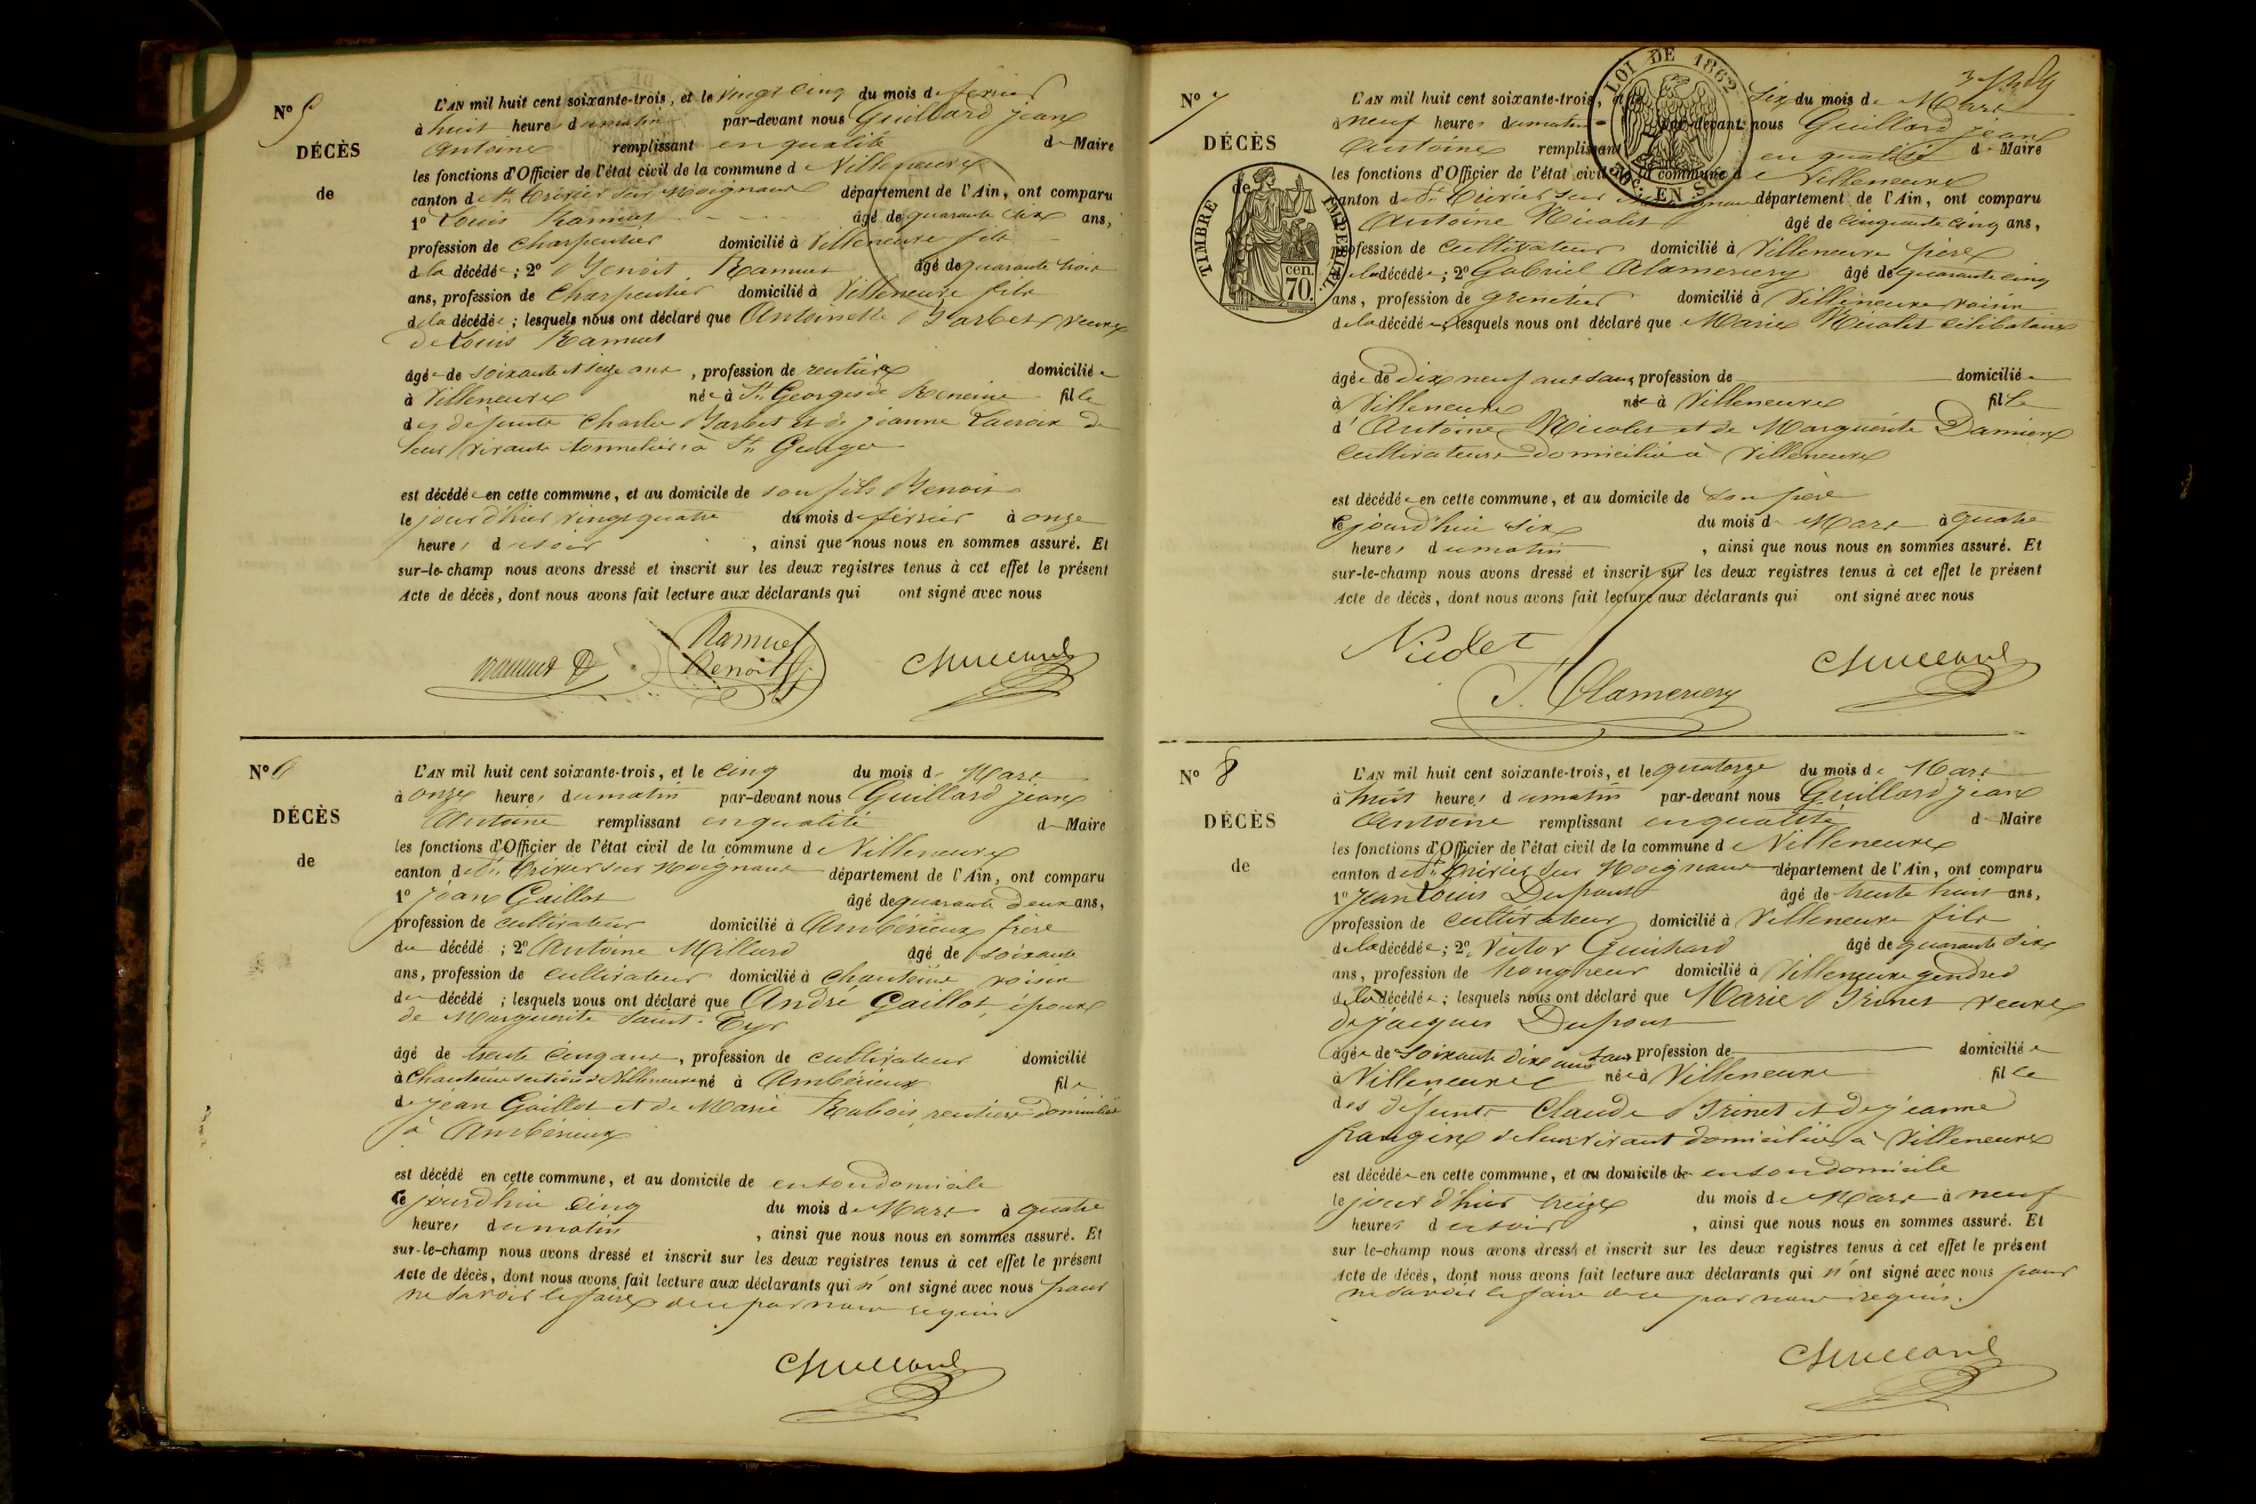 N° 5
DÉCÈS
de
L'AN mil huit cent soixante-trois, et le vingt cinq du mois de février
à huit heures du matin par-devant nous Guillard jean
Antoine remplissant en qualité de Maire
les fonctions d'Officier de l'état civil de la commune de Villeneuve
canton de St Trivier sur Moignans département de l'Ain, ont comparu
1° Louis Ramuet âgé de quarante six ans,
profession de charpentier domicilié à Villeneuve fils
de la décédée ; 2° Benoit Ramuet âgé de quarante trois
ans, profession de charpentier domicilié à Villeneuve fils
de la décédée ; lesquels nous ont déclaré que Antoinette Barbet veuve
de Louis Ramuet
âgée de soixante et seize ans, profession de rentière domiciliée
à Villeneuve née à St Georges de Reneins fille
des défunts Charles Barbet et de jeanne Lacroix de
leur vivant tonnelier à St Georges
est décédée en cette commune, et au domicile de son fils Benoit
le jour d'hier vingt quatre du mois de février à onze
heures du soir, ainsi que nous nous en sommes assuré. Et
sur-le-champ nous avons dressé et inscrit sur les deux registres tenus à cet effet le présent
Acte de décès, dont nous avons fait lecture aux déclarants qui ont signé avec nous
Ramuet
Benoit
Guillard
N° 6
DÉCÈS
de
L'AN mil huit cent soixante-trois, et le cinq du mois de Mars
à onze heures du matin par-devant nous Guillard jean
Antoine remplissant en qualité de Maire
les fonctions d'Officier de l'état civil de la commune de Villeneuve
canton de St Trivier sur Moignans département de l'Ain, ont comparu
1° jean Gaillot âgé de quarante deux ans,
profession de cultivateur domicilié à Ambérieux frère
du décédé ; 2° Antoine Millard âgé de soixante
ans, profession de cultivateur domicilié à Chanteins voisin
du décédé ; lesquels nous ont déclaré que André Gaillot, époux
de Marguerite Saint-Cyr
âgé de trente cinq ans, profession de cultivateur domicilié
à Chanteins section de Villeneuve né à Ambérieux fils
de jean Gaillot et de Marie Rabois, rentiers domiciliés
à Ambérieux
est décédé en cette commune, et au domicile de en son domicile
ce jourd'hui cinq du mois de Mars à quatre
heures du matin, ainsi que nous nous en sommes assuré. Et
sur-le-champ nous avons dressé et inscrit sur les deux registres tenus à cet effet le présent
Acte de décès, dont nous avons fait lecture aux déclarants qui n'ont signé avec nous pour
ne savoir le faire de ce par nous requis
Guillard
N° 7
DÉCÈS
de
LOI DE 1862
EN SUS
TIMBRE IMPÉRIAL
70 cen.
L'AN mil huit cent soixante-trois, et le six du mois de Mars
à neuf heures du matin par-devant nous Guillard jean
Antoine remplissant en qualité de Maire
les fonctions d'Officier de l'état civil de la commune de Villeneuve
canton de St Trivier sur Moignans département de l'Ain, ont comparu
Antoine Nicolet âgé de cinquante cinq ans,
profession de cultivateur domicilié à Villeneuve père
de la décédée ; 2° Gabriel Alamercery âgé de quarante cinq
ans, profession de grenetier domicilié à Villeneuve voisin
de la décédée ; lesquels nous ont déclaré que Marie Nicolet célibataire
âgée de dix neuf ans sans profession de domiciliée
à Villeneuve née à Villeneuve fille
d'Antoine Nicolet et de Marguerite Damien
cultivateurs domiciliés à Villeneuve
est décédée en cette commune, et au domicile de son père
ce jourd'hui six du mois de Mars à quatre
heures du matin, ainsi que nous nous en sommes assuré. Et
sur-le-champ nous avons dressé et inscrit sur les deux registres tenus à cet effet le présent
Acte de décès, dont nous avons fait lecture aux déclarants qui ont signé avec nous
Nicolet
Alamercery
Guillard
N° 8
DÉCÈS
de
L'AN mil huit cent soixante-trois, et le quatorze du mois de Mars
à huit heures du matin par-devant nous Guillard jean
Antoine remplissant en qualité de Maire
les fonctions d'Officier de l'état civil de la commune de Villeneuve
canton de St Trivier sur Moignans département de l'Ain, ont comparu
1° jean Louis Dupont âgé de trente trois ans,
profession de cultivateur domicilié à Villeneuve fils
de la décédée ; 2° Victor Guichard âgé de quarante six
ans, profession de hongreur domicilié à Villeneuve gendre
de la décédée ; lesquels nous ont déclaré que Marie Brunet veuve
de jacques Dupont
âgée de soixante dix ans sans profession de domiciliée
à Villeneuve née à Villeneuve fille
des défunts Claude Brunet et de jeanne
frangin de leur vivant domiciliés à Villeneuve
est décédée en cette commune, et au domicile de en son domicile
le jour d'hier treize du mois de Mars à neuf
heures du soir, ainsi que nous nous en sommes assuré. Et
sur le-champ nous avons dressé et inscrit sur les deux registres tenus à cet effet le présent
Acte de décès, dont nous avons fait lecture aux déclarants qui n'ont signé avec nous pour
ne savoir le faire de ce par nous requis.
Guillard